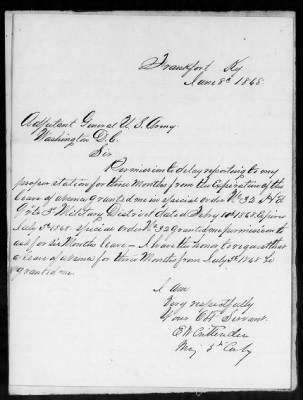 Frankfort Ky.
June 8th 1868.
Adjutant General U. S. Army
Washington D. C.
Sir
Permission to delay reporting to my
proper station for three Months from the Expiration of the
leave of absence granted me in special order No 32
Military District dated Febry 10th 1868 Expires
July 5th 1868. special order No 32 granted me permission to
ask for six Months leave - I have the honor, to request that
a leave of absence for three Months from July 5th 1868 be
granted me.
I am
Very respectfully
Your Obt Servant
Maj 5th Cavy